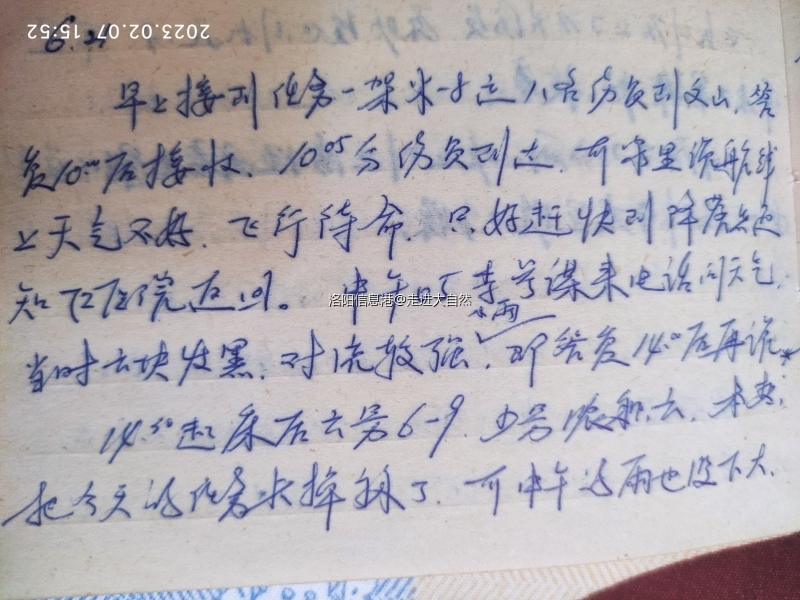 2023.02.07 15:52
6.21
早上接到任务一架米-8运八名伤员到文山,答
复10:00后接收,10:05分伤员到达,可 航线
上天气不好,飞行待命,只好赶快到降落点通
知 医院返回。 中午时 李参谋来电话问天气,
小雨
当时云块发黑,对流较强,即答复14:00后再说,
14:30起床后云 6-9,少 浓积云,本
把今天的任务 掉了,可中午的雨也没下大,
洛阳信息港@走进大自然